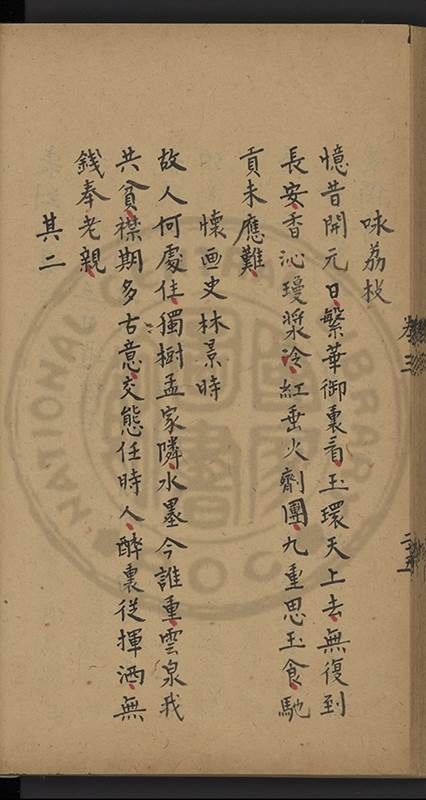 咏荔枝
憶昔開元日繁華御裏看玉環天上去無復到
長安香沁瓊漿冷紅垂火劑團九重思玉食馳
貢未應難
懷画史林景時
故人何處住獨樹孟家隣水墨今誰重雲泉我
共貧襟期多古意交態任時人醉裏從揮洒無
錢奉老親
其二
卷三